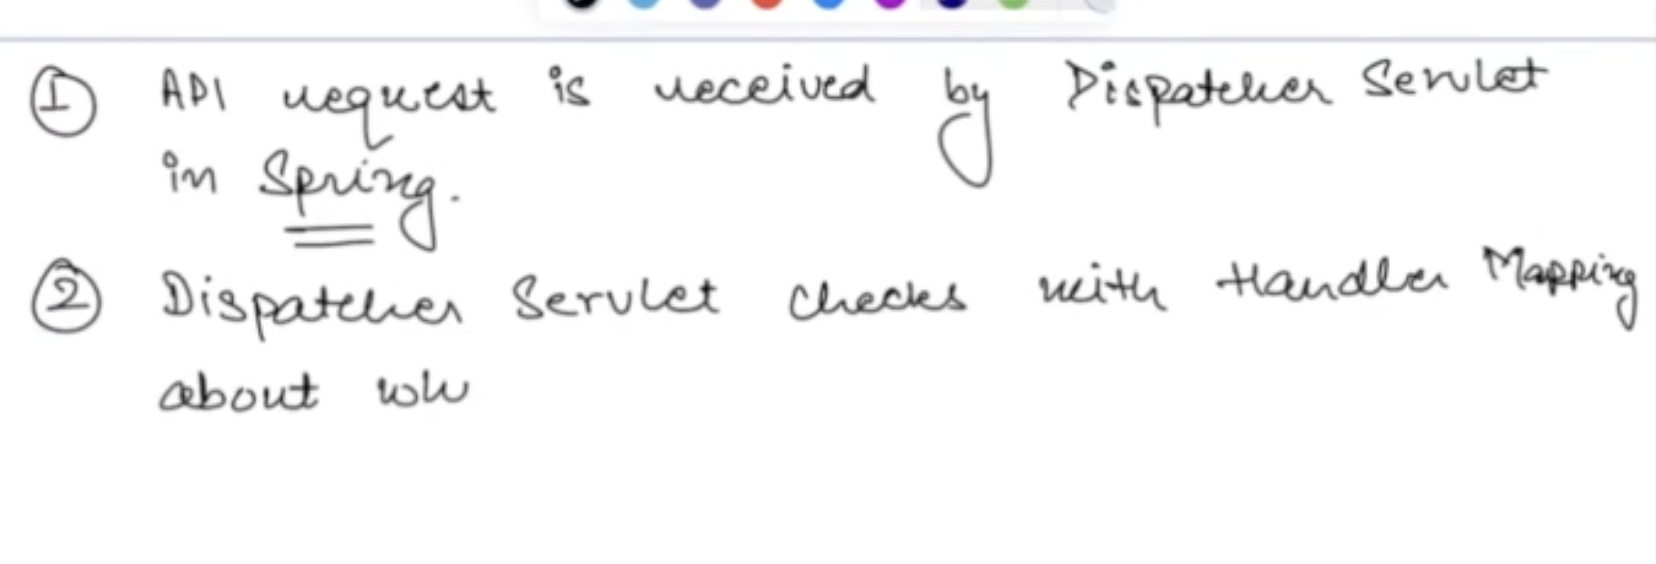 ① API request is received by Dispatcher Servlet
in Spring.
② Dispatcher Servlet checks with Handler Mapping
about